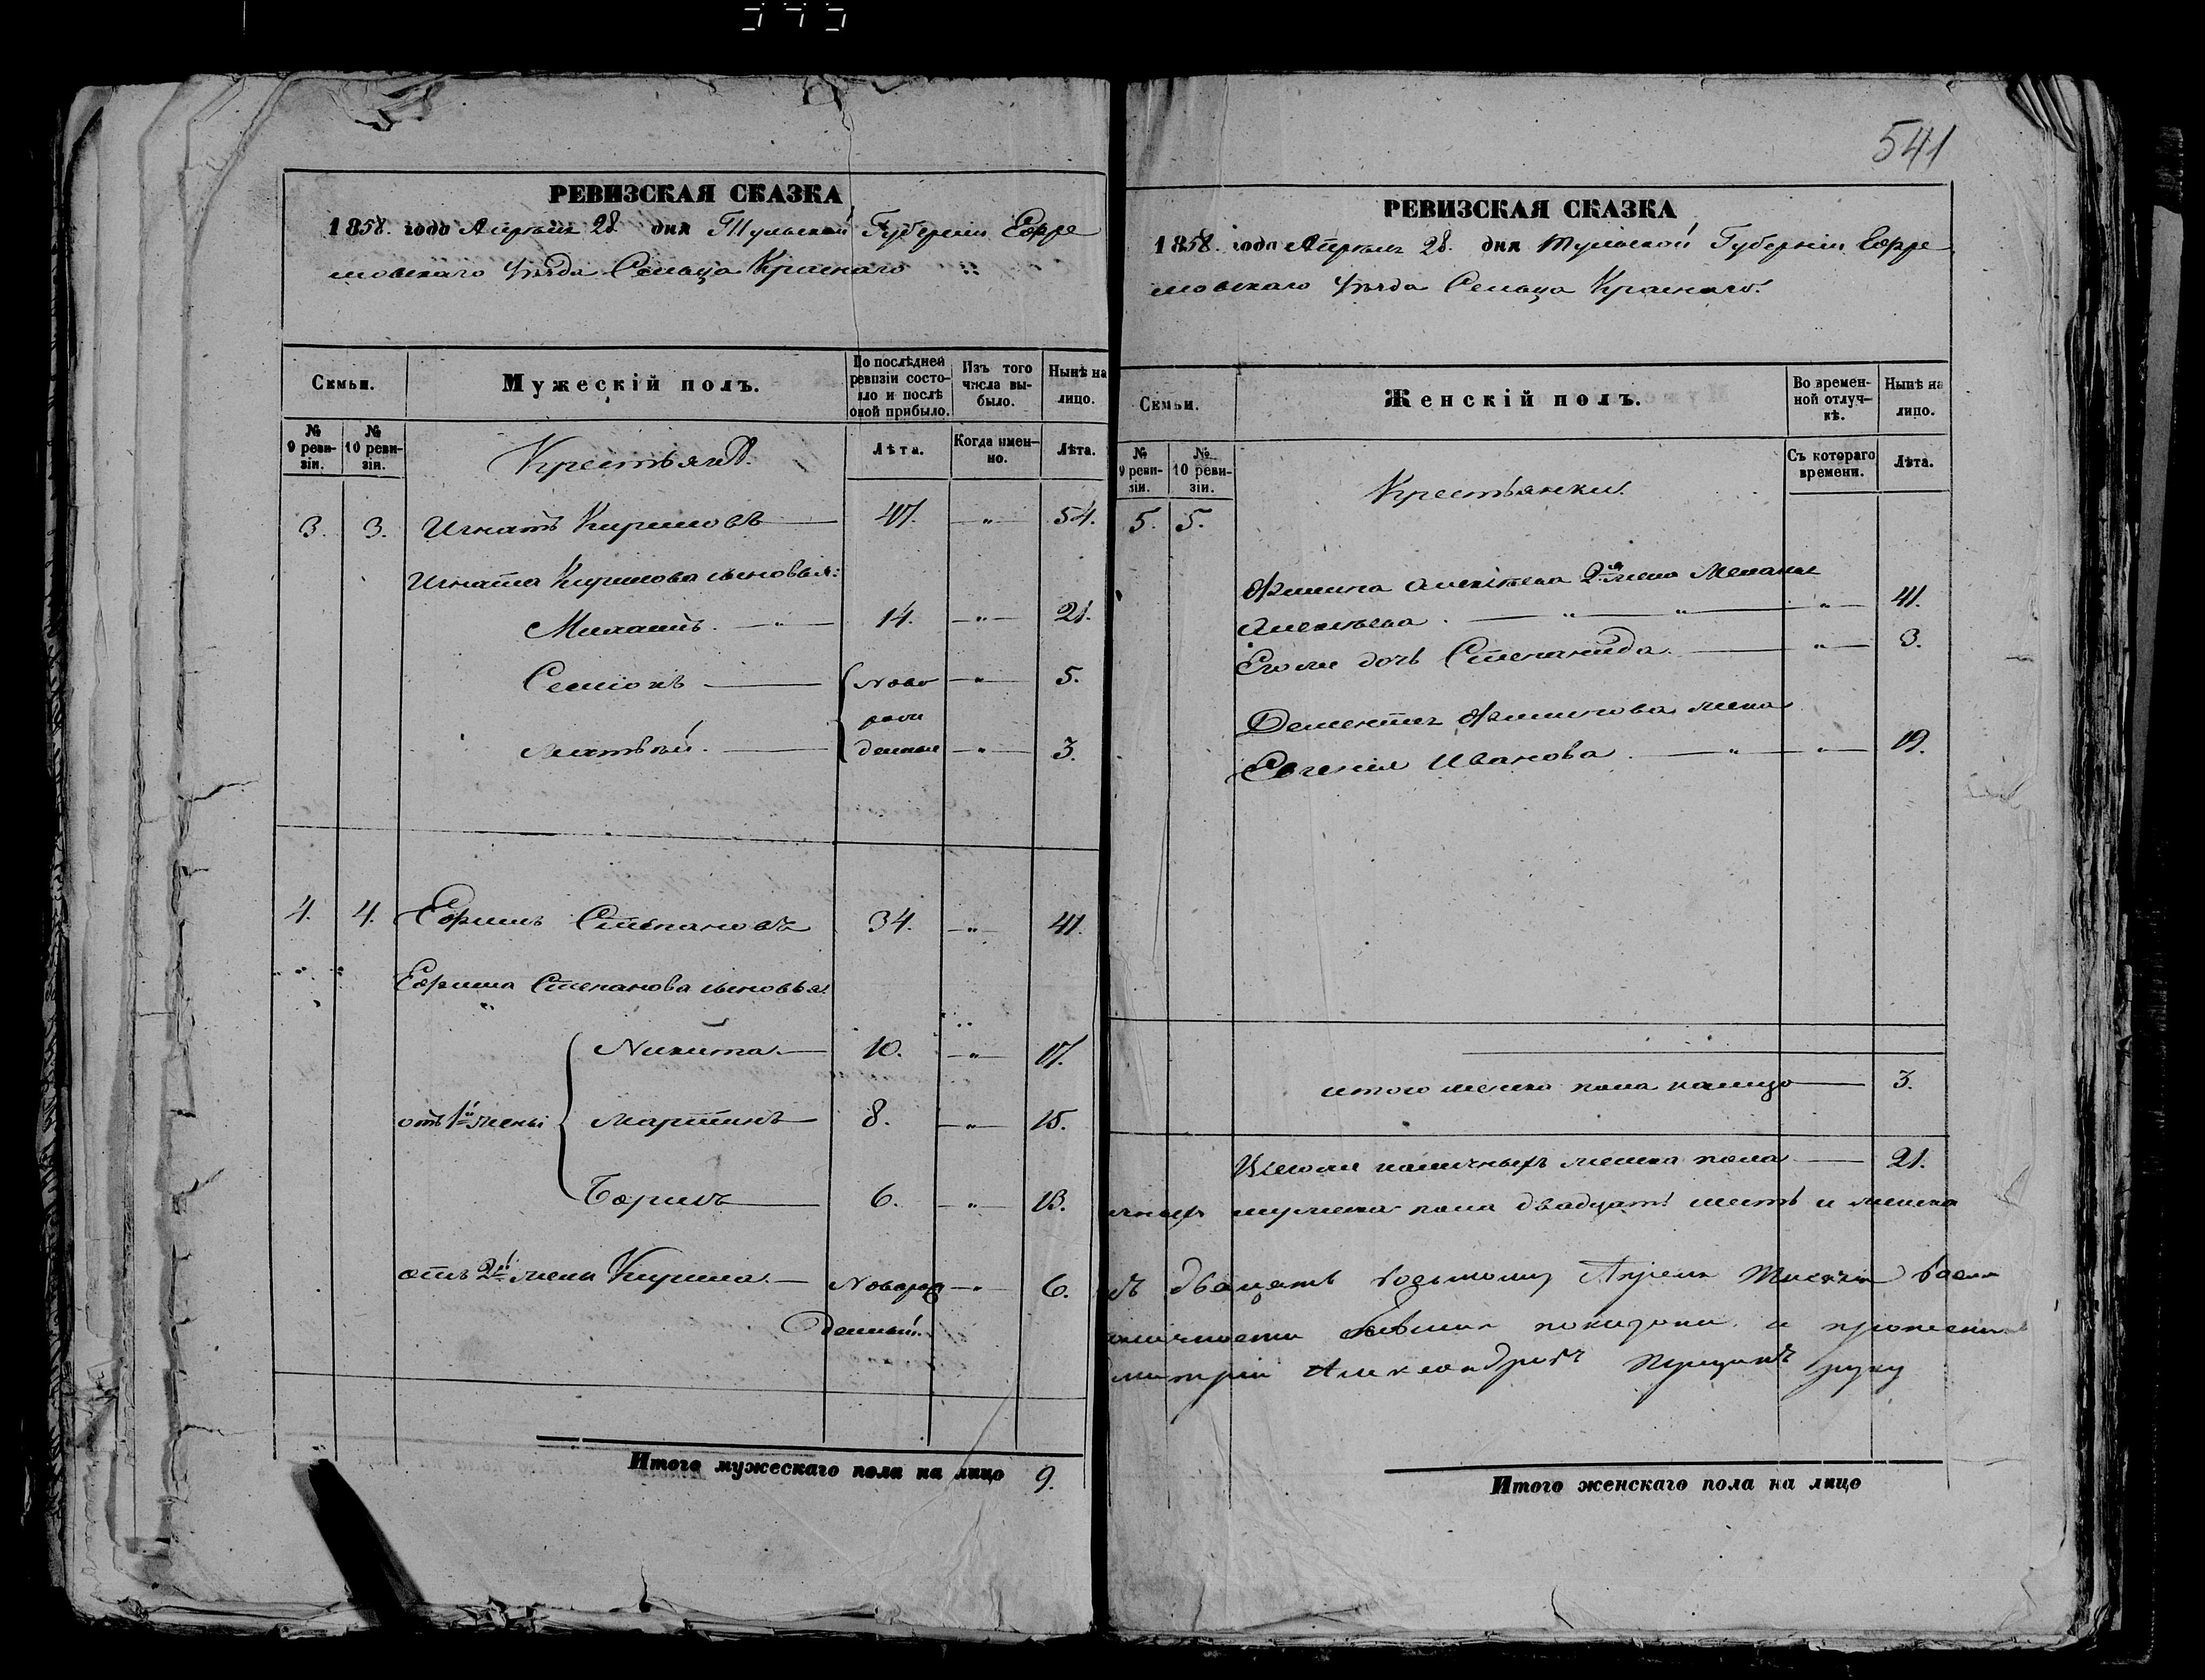 541
РЕВИЗСКАЯ СКАЗКА
1858. года Апреля 28 дня Тульской Губернiи Ефре
мовскаго Уѣзда Сельца Краснаго
Семьи.
Мужескiй полъ.
По послѣдней ревизiи состо-
яло и послѣ оной прибыло.
Изъ того числа вы-
было.
Нынѣ на лицо.
№ 9 реви-
зiи.
№ 10 реви-
зiи.
Крестьяне.
Лѣта.
Когда имен-
но.
Лѣта.
3. 3. Игнатъ Кириловъ 47. " 54.
Игната Кирилова сыновья:
Михаилъ. " 14. " 21.
Семіонъ Ново " 5.
рож
Матвѣй. денные " 3.
4. 4. Ефимъ Степановъ 34. " 41.
Ефима Степанова сыновья.
Никита. 10. " 17.
отъ 1й жены Мартинъ 8. " 15.
Борисъ 6. " 13.
отъ 2й жены Кирила. Новорож " 6.
денный.
Итого мужескаго пола на лицо 9.
РЕВИЗСКАЯ СКАЗКА
1858. года Апреля 28. дня Тульской Губернiи Ефре
мовскаго Уѣзда Сельца Краснаго.
Семьи.
Женскiй полъ.
Во времен-
ной отлуч-
кѣ.
Нынѣ на лицо.
№ 9 реви-
зiи.
№ 10 реви-
зiи.
Крестьянки.
Съ котораго времени.
Лѣта.
5. 5.
2я жена Меланья
Алексѣева. " " " 41.
Его же дочь Степанида. " 3.
Дементія жена
Евгенія Иванова. " " 19.
итого женска пола налицо 3.
Всего наличныхъ женска пола 21.
мужска пола двадцать шесть и женска
двацать восьмому Апреля Тысяча
бывшия показаны. и
Александровъ руку
Итого женскаго пола на лицо